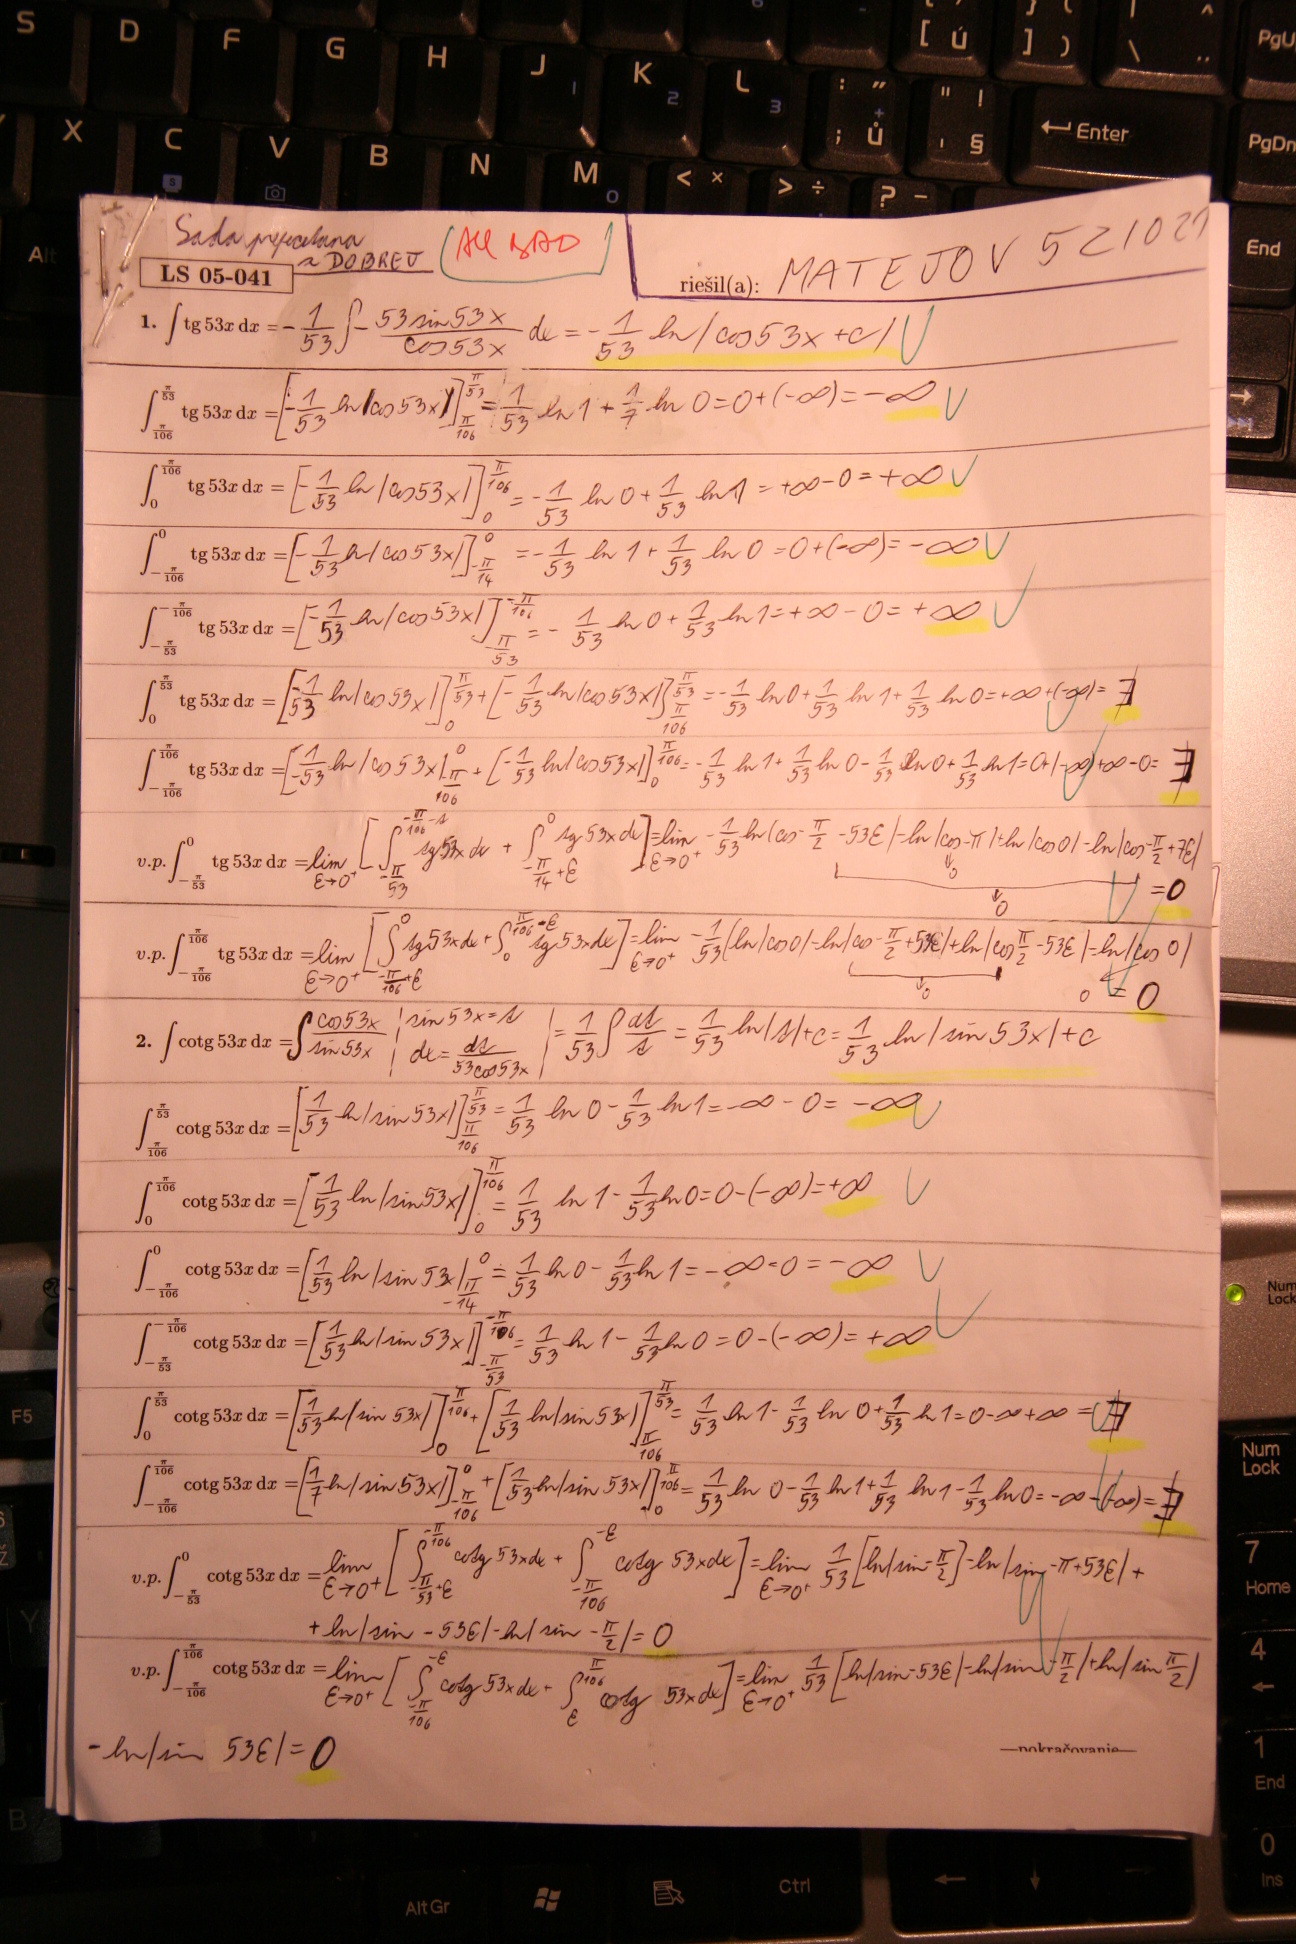 S D F G H J 1 K 2 L 3 : " ; ů " ! ' § [ ú ] ) \ PgU
X C V B N M 0 < × > ÷ ? - Enter PgDn
Alt End
Sada
DOBREJ
ALL BAD
LS 05-041
riešil(a): MATEJOV 521021
1. ∫ tg 53x dx = -1/53 ∫ -53 sin 53x / cos 53x dx = -1/53 ln|cos 53x + c|
∫_{π/106}^{π/53} tg 53x dx = [-1/53 ln|cos 53x|]_{π/106}^{π/53} = 1/53 ln 1 + 1/7 ln 0 = 0 + (-∞) = -∞
∫_0^{π/106} tg 53x dx = [-1/53 ln|cos 53x|]_0^{π/106} = -1/53 ln 0 + 1/53 ln 1 = +∞ - 0 = +∞
∫_{-π/106}^0 tg 53x dx = [-1/53 ln|cos 53x|]_{-π/14}^0 = -1/53 ln 1 + 1/53 ln 0 = 0 + (-∞) = -∞
∫_{-π/53}^{-π/106} tg 53x dx = [-1/53 ln|cos 53x|]_{-π/53}^{-π/106} = -1/53 ln 0 + 1/53 ln 1 = +∞ - 0 = +∞
∫_0^{π/53} tg 53x dx = [-1/53 ln|cos 53x|]_0^{π/53} + [-1/53 ln|cos 53x|]_{π/106}^{π/53} = -1/53 ln 0 + 1/53 ln 1 + 1/53 ln 0 = +∞ + (-∞) = ∄
∫_{-π/106}^{π/106} tg 53x dx = [1/-53 ln|cos 53x|]_{π/106}^0 + [-1/53 ln|cos 53x|]_0^{π/106} = -1/53 ln 1 + 1/53 ln 0 - 1/53 ln 0 + 1/53 ln 1 = 0 + (-∞) + ∞ - 0 = ∄
v.p. ∫_{-π/53}^0 tg 53x dx = lim_{ε→0⁺} [∫_{-π/53}^{-π/106-ε} tg 53x dx + ∫_{-π/14+ε}^0 tg 53x dx] = lim_{ε→0⁺} -1/53 ln|cos -π/2 - 53ε| - ln|cos -π| + ln|cos 0| - ln|cos -π/2 + 7ε|
0 0 = 0
v.p. ∫_{-π/106}^{π/106} tg 53x dx = lim_{ε→0⁺} [∫_{-π/106+ε}^0 tg 53x dx + ∫_0^{π/106-ε} tg 53x dx] = lim_{ε→0⁺} -1/53 (ln|cos 0| - ln|cos -π/2 + 53ε| + ln|cos π/2 - 53ε| - ln|cos 0|
0 0 = 0
2. ∫ cotg 53x dx = ∫ cos 53x / sin 53x | sin 53x = s dx = ds / 53 cos 53x | = 1/53 ∫ ds/s = 1/53 ln|s| + c = 1/53 ln|sin 53x| + c
∫_{π/106}^{π/53} cotg 53x dx = [1/53 ln|sin 53x|]_{π/106}^{π/53} = 1/53 ln 0 - 1/53 ln 1 = -∞ - 0 = -∞
∫_0^{π/106} cotg 53x dx = [1/53 ln|sin 53x|]_0^{π/106} = 1/53 ln 1 - 1/53 ln 0 = 0 - (-∞) = +∞
∫_{-π/106}^0 cotg 53x dx = [1/53 ln|sin 53x|]_{-π/14}^0 = 1/53 ln 0 - 1/53 ln 1 = -∞ - 0 = -∞
∫_{-π/53}^{-π/106} cotg 53x dx = [1/53 ln|sin 53x|]_{-π/53}^{-π/106} = 1/53 ln 1 - 1/53 ln 0 = 0 - (-∞) = +∞
∫_0^{π/53} cotg 53x dx = [1/53 ln|sin 53x|]_0^{π/106} + [1/53 ln|sin 53x|]_{π/106}^{π/53} = 1/53 ln 1 - 1/53 ln 0 + 1/53 ln 1 = 0 - ∞ + ∞ = ∄
∫_{-π/106}^{π/106} cotg 53x dx = [1/7 ln|sin 53x|]_{-π/106}^0 + [1/53 ln|sin 53x|]_0^{π/106} = 1/53 ln 0 - 1/53 ln 1 + 1/53 ln 1 - 1/53 ln 0 = -∞ - (-∞) = ∄
v.p. ∫_{-π/53}^0 cotg 53x dx = lim_{ε→0⁺} [∫_{-π/53+ε}^{-π/106} cotg 53x dx + ∫_{-π/106}^{-ε} cotg 53x dx] = lim_{ε→0⁺} 1/53 [ln|sin -π/2| - ln|sin -π + 53ε| +
+ ln|sin - 53ε| - ln|sin -π/2| = 0
v.p. ∫_{-π/106}^{π/106} cotg 53x dx = lim_{ε→0⁺} [∫_{-π/106}^{-ε} cotg 53x dx + ∫_ε^{π/106} cotg 53x dx] = lim_{ε→0⁺} 1/53 [ln|sin -53ε| - ln|sin -π/2| + ln|sin π/2|
- ln|sin 53ε| = 0
—pokračovanie—
Num Lock
F5
Num Lock
7 Home
4 ←
1 End
0 Ins
B
Alt Gr Ctrl ← ↓